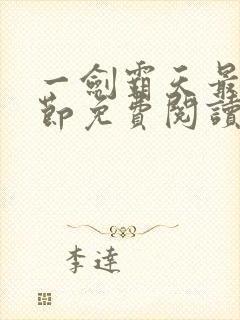 一劍霸天最
節免費閱讀
李達